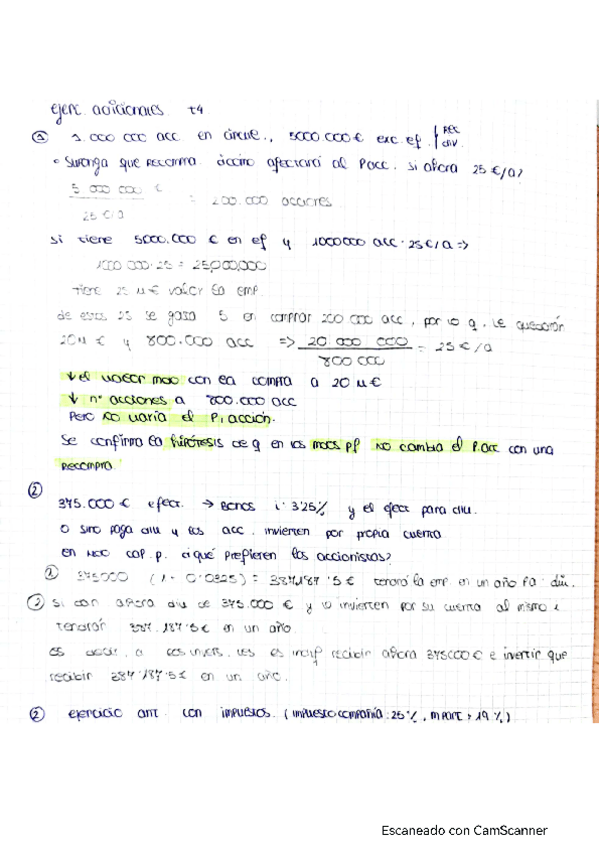 ejerc. adicionales t4
① 1.000 000 acc en circul., 5000.000 € exc. ef. REC DIV
• Suponga que recompra. ¿cómo afectará al Pacc. si ahora 25 €/a?
5 000 000 € / 25 €/a = 200.000 acciones
si tiene 5000.000 € en ef y 1000000 acc · 25€/a =>
1000 000 · 25 = 25,000,000
Tiene 25 M € valor la emp.
de esos 25 se gasa 5 en comprar 200 000 acc, por lo q. le quedarán
20 M € y 800.000 acc => 20 000 000 / 800 000 = 25 €/a
↓ el valor mdo con la compra a 20 M €
↓ nº acciones a 800.000 acc
Pero no varía el P, acción.
Se confirma la hipótesis de q en los mdos pf no cambia el P.acc con una
recompra.
②
375.000 € efect. → Bonos i 3'25% y el efect para div.
O sino paga div y los acc. invierten por propia cuenta
en mdo cap. p. ¿qué prefieren los accionistas?
① 375000 (1 + 0'0325) = 387.187'5 € tendrá la emp. en un año pa div.
② Si dan ahora div de 375.000 € y lo invierten por su cuenta al mismo i
tendrán 387.187'5 € en un año.
es decir, a los invers. les es indif recibir ahora 375000 € e invertir que
recibir 387'187'5 € en un año.
② ejercicio ant. con impuestos. (impuesto compañía: 25%, 19%)
Escaneado con CamScanner